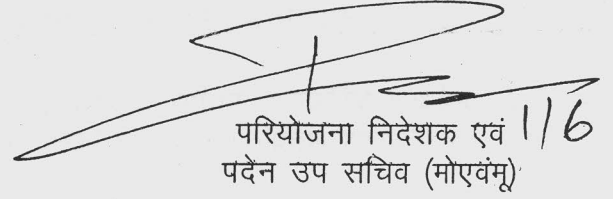 परियोजना निदेशक एवं 1/6
पदेन उप सचिव (मोएवंमू)